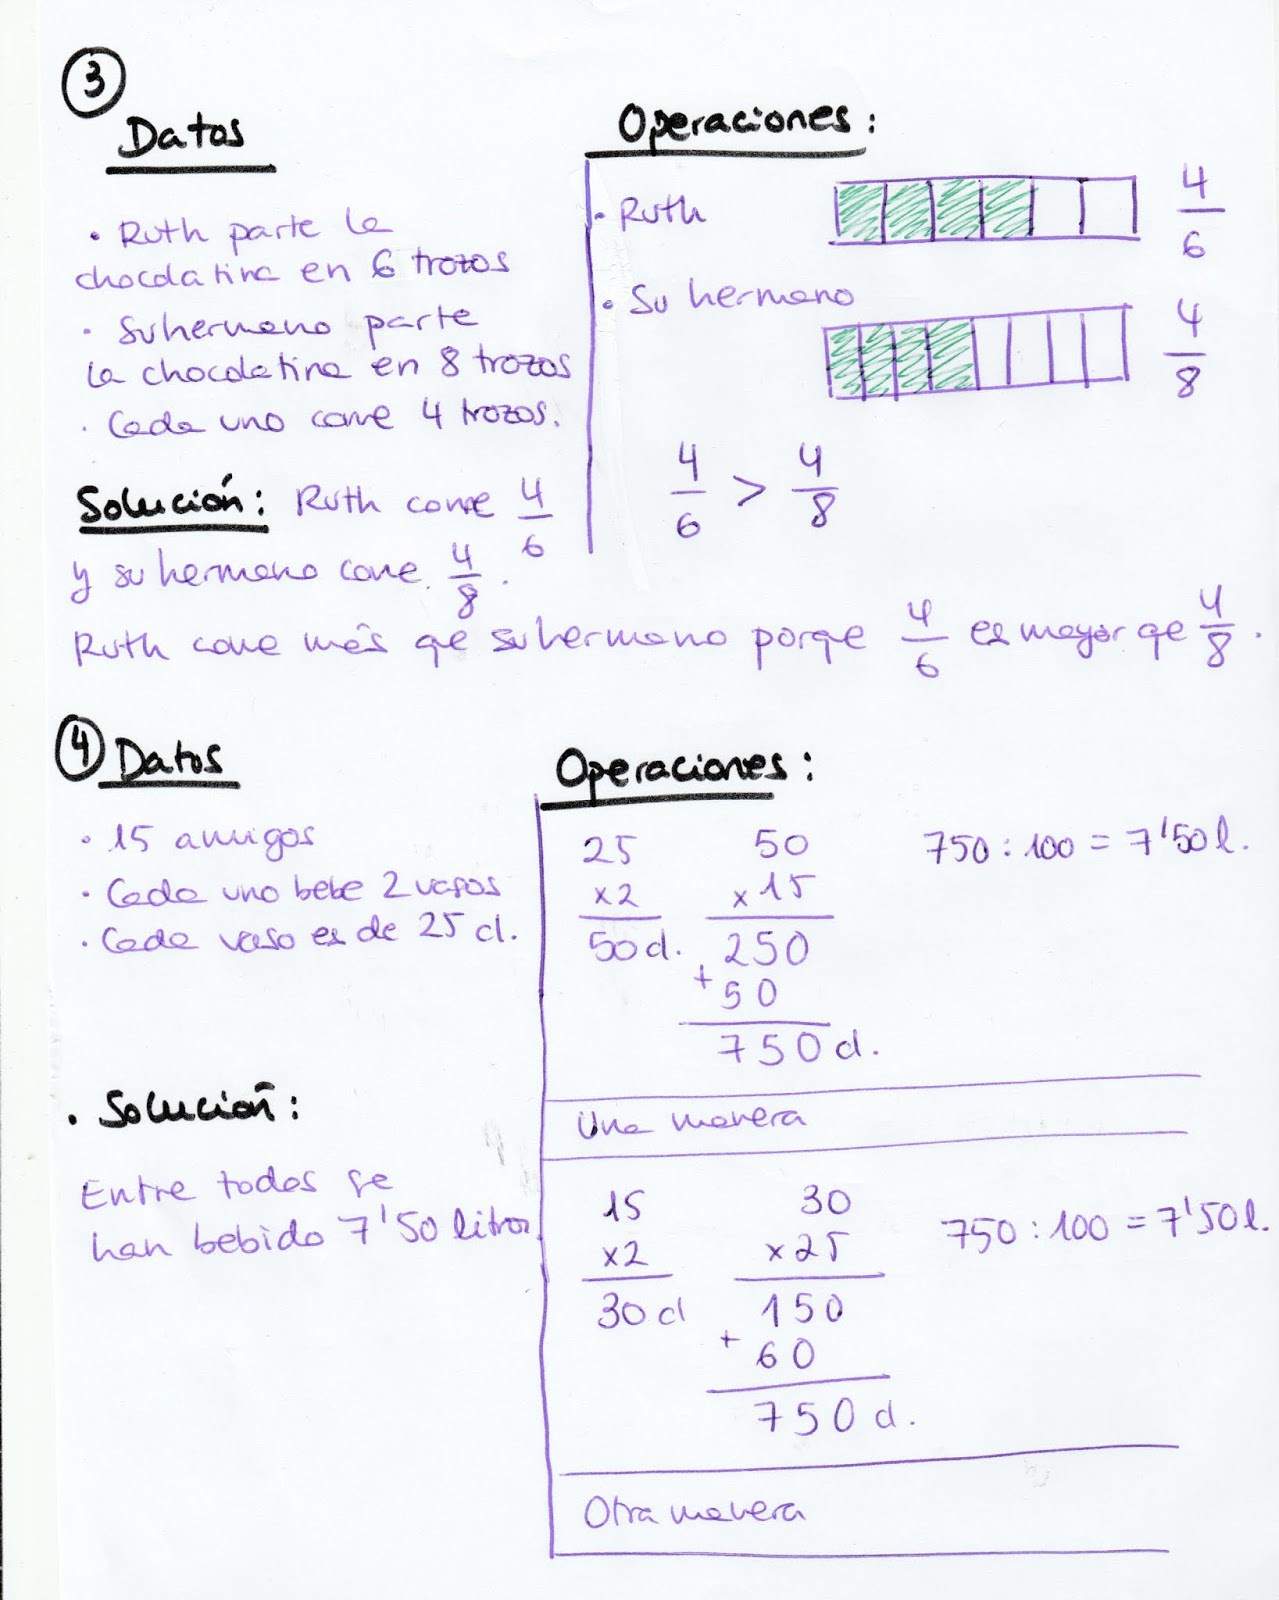 3
Datos
• Ruth parte la
chocolatina en 6 trozos
• Su hermano parte
la chocolatina en 8 trozos
• Cada uno come 4 trozos.
Operaciones:
• Ruth 4/6
• Su hermano 4/8
4/6 > 4/8
Solución: Ruth come 4/6
y su hermano come 4/8.
Ruth come más que su hermano porque 4/6 es mayor que 4/8.
4 Datos
• 15 amigos
• Cada uno bebe 2 vasos
• Cada vaso es de 25 cl.
• Solución:
Entre todos se
han bebido 7'50 litros
Operaciones:
25 50 750 : 100 = 7'50 l.
x2 x15
50 cl. 250
+ 50
750 cl.
Una manera
15 30 750 : 100 = 7'50 l.
x2 x25
30 cl 150
+ 60
750 cl.
Otra manera